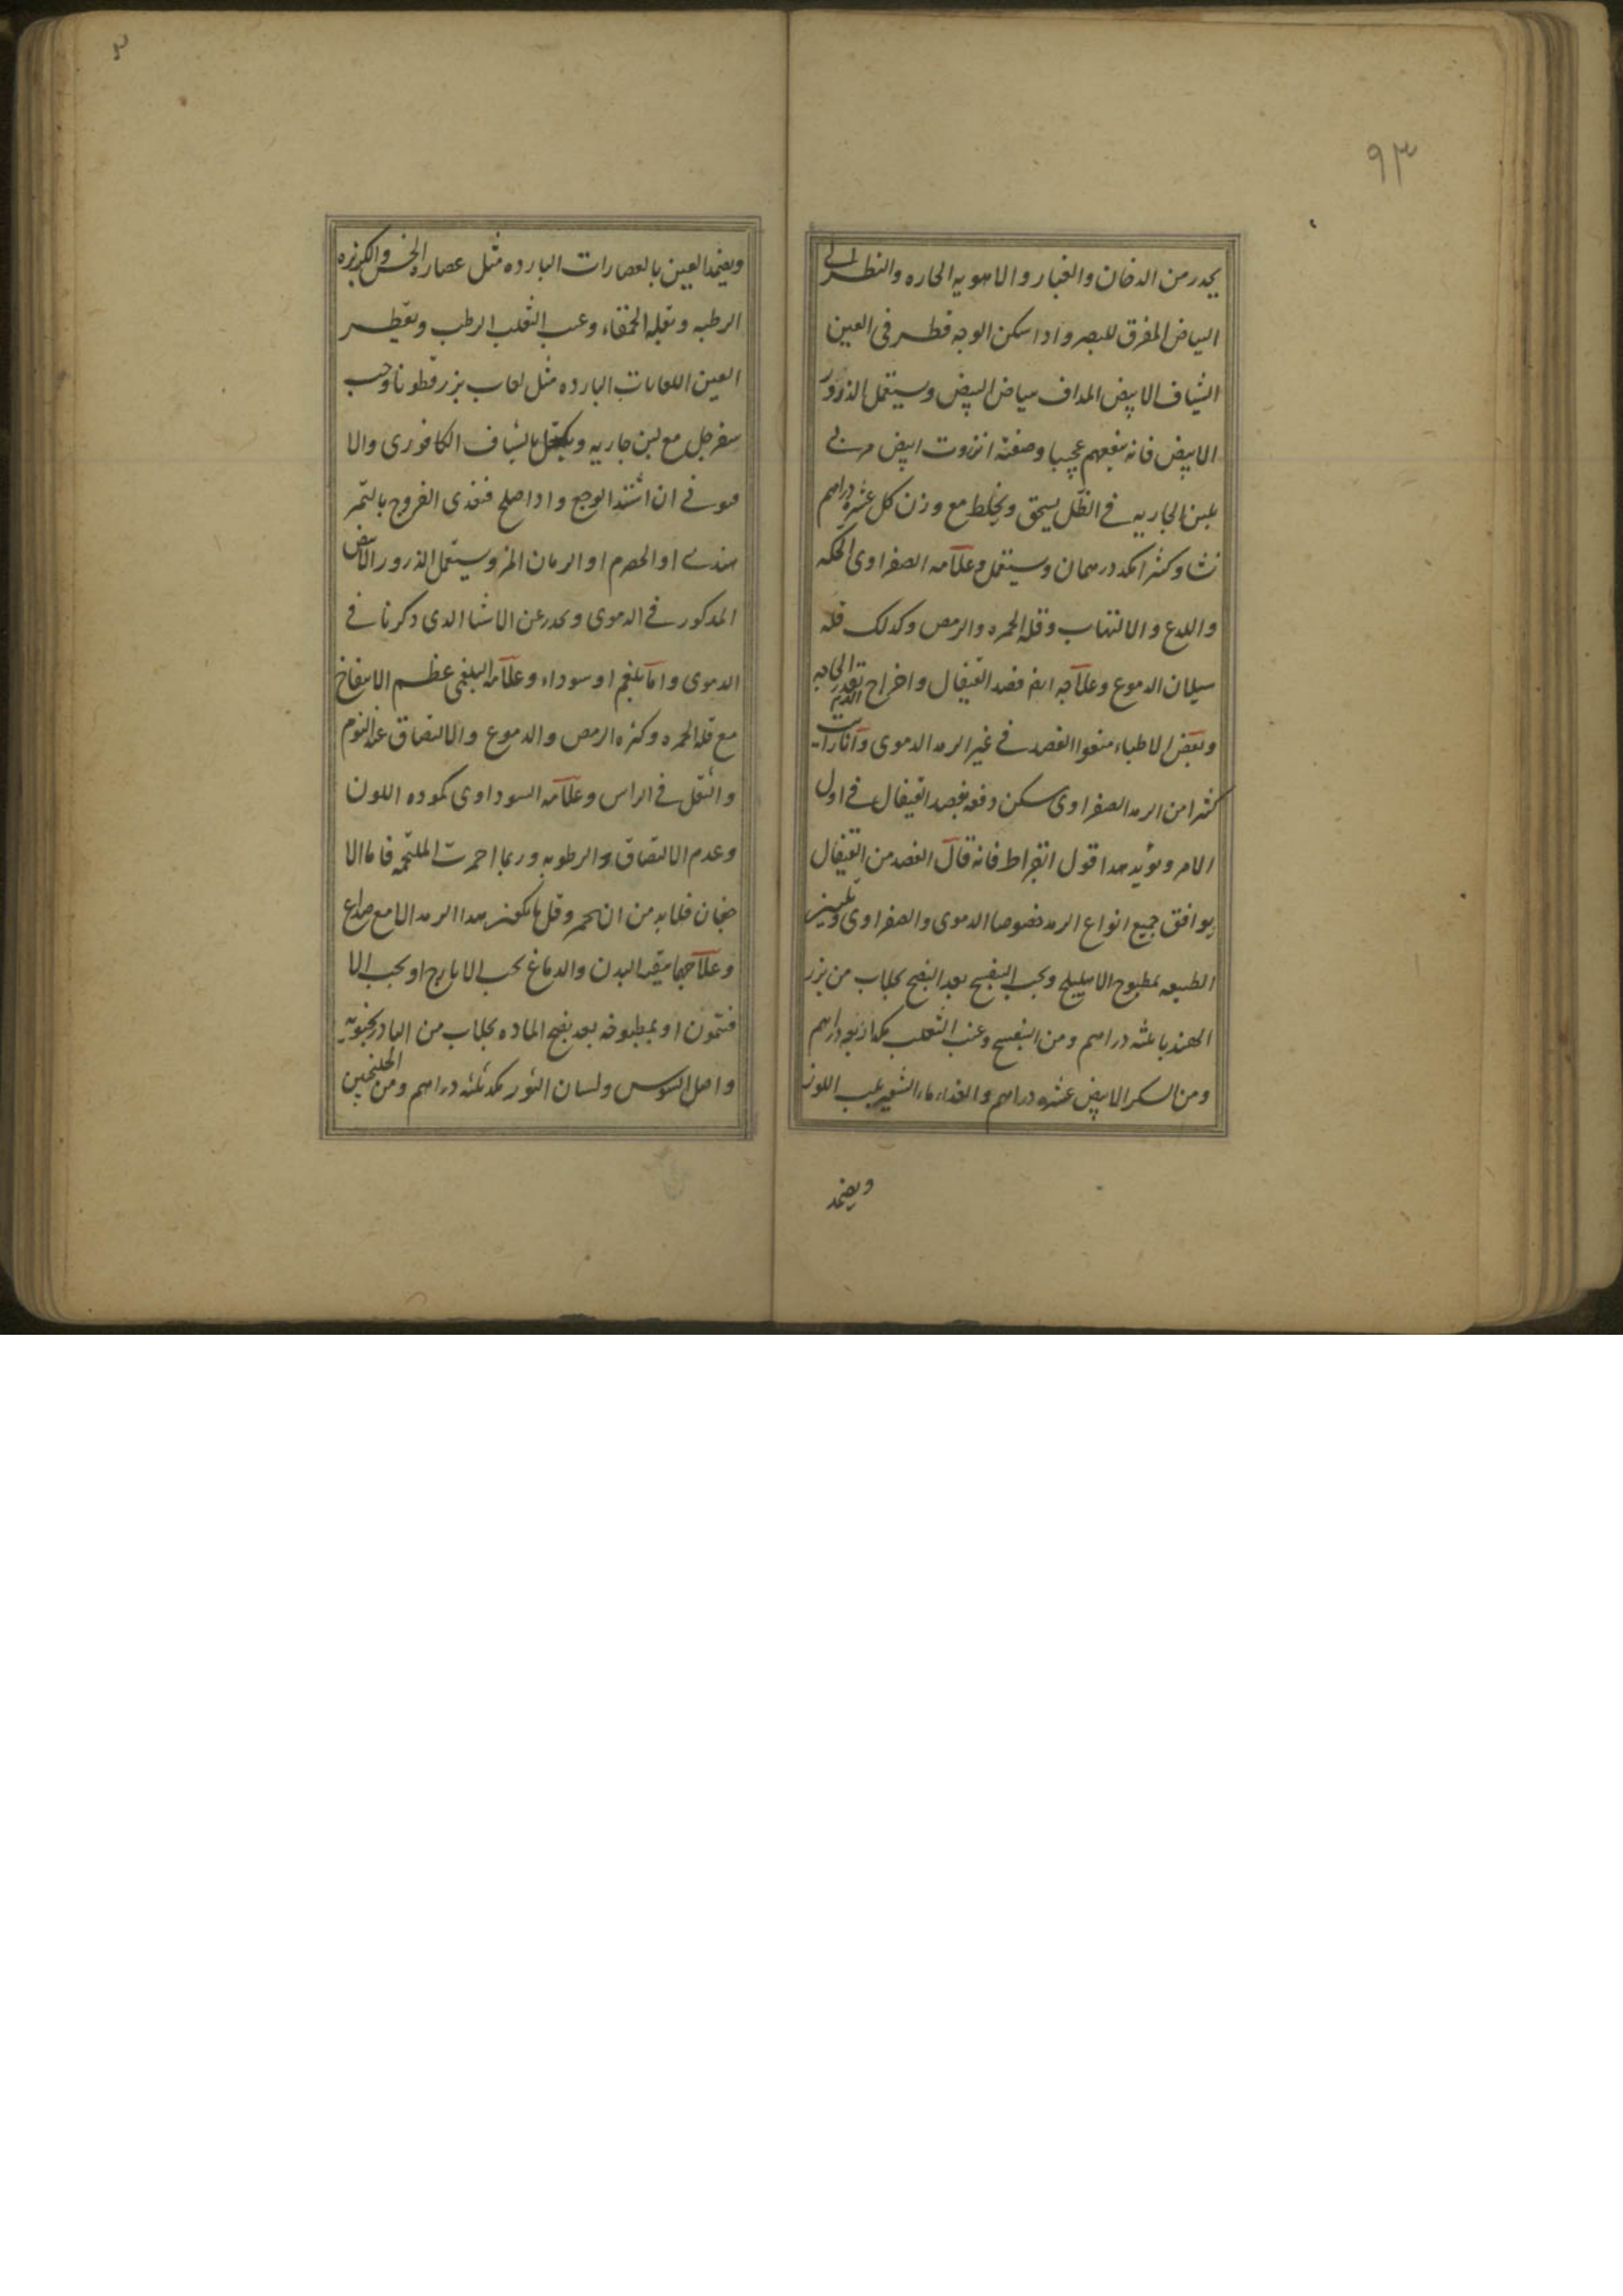 ٩٣
يحدر من الدخان والغبار والاهويه الحاره والنظر الى
البياض المفرق للبصر واذا سكن الوجه قطر فى العين
الشياف الابيض المداف ببياض البيض ويستعمل الذرور
الابيض فانه ينفعهم عجيبا وصفته انزروت ابيض مربى
بلبن الجاريه فى الظل يسحق ويخلط مع وزن كل عشره دراهم
نشا وكثيرا مكد درهمان ويستعمل وعلامه الصفراوى الحكه
واللدع والالتهاب وقله الحمره والرمص وكدلك قله
سيلان الدموع وعلاجه ايضا فصد القيفال واخراج الدم بقدر الحاجه
وبعض الاطباء منعوا الفصد فى غير الرمد الدموى وانا رايت
كثيرا من الرمد الصفراوى سكن دفعه بفصد القيفال فى اول
الامر ويؤيد هدا قول ابقراط فانه قال الفصد من القيفال
يوافق جميع انواع الرمد خصوصا الدموى والصفراوى وتليين
الطبيعه بمطبوخ الاهليلج وبحب البنفسج بعد النضج بجلاب من بزر
الهندبا ثلثه دراهم ومن البنفسج وعنب الثعلب مكد اربعه دراهم
ومن السكر الابيض عشره دراهم والغداء ماء الشعير بحب اللوز
ويضمد
ويضمد العين بالعصارات البارده مثل عصاره الخس والكزبره
الرطبه وبقله الحمقاء وعنب الثعلب الرطب ويقطر
العين اللعابات البارده مثل لعاب بزر قطونا وحب
سفرجل مع لبن جاريه ويكتحل بالشياف الكافورى والا
فيونى ان اشتد الوجع واذا صلح فغذى الفروج بالتمر
هندى او الحصرم او الرمان المز ويستعمل الذرور الابيض
المدكور فى الدموى ويحدر عن الاشيا الدى دكرنا فى
الدموى واما بلغم او سوداء وعلامه البلغمى عظم الانتفاخ
مع قله الحمره وكثره الرمص والدموع والالتصاق عند النوم
والثقل فى الراس وعلامه السوداوى كموده اللون
وعدم الالتصاق والرطوبه وربما احمرت الملتحمه فاما الا
جفان فلابد من ان تحمر وقل ما يكون هدا الرمد الا مع صداع
وعلاجهما تنقيه البدن والدماغ بحب الايارج او بحب الا
فتمون او بمطبوخه بعد نضج الماده بجلاب من البادرنجبويه
واصل السوس ولسان الثور مكد ثلثه دراهم ومن الجلنجبين